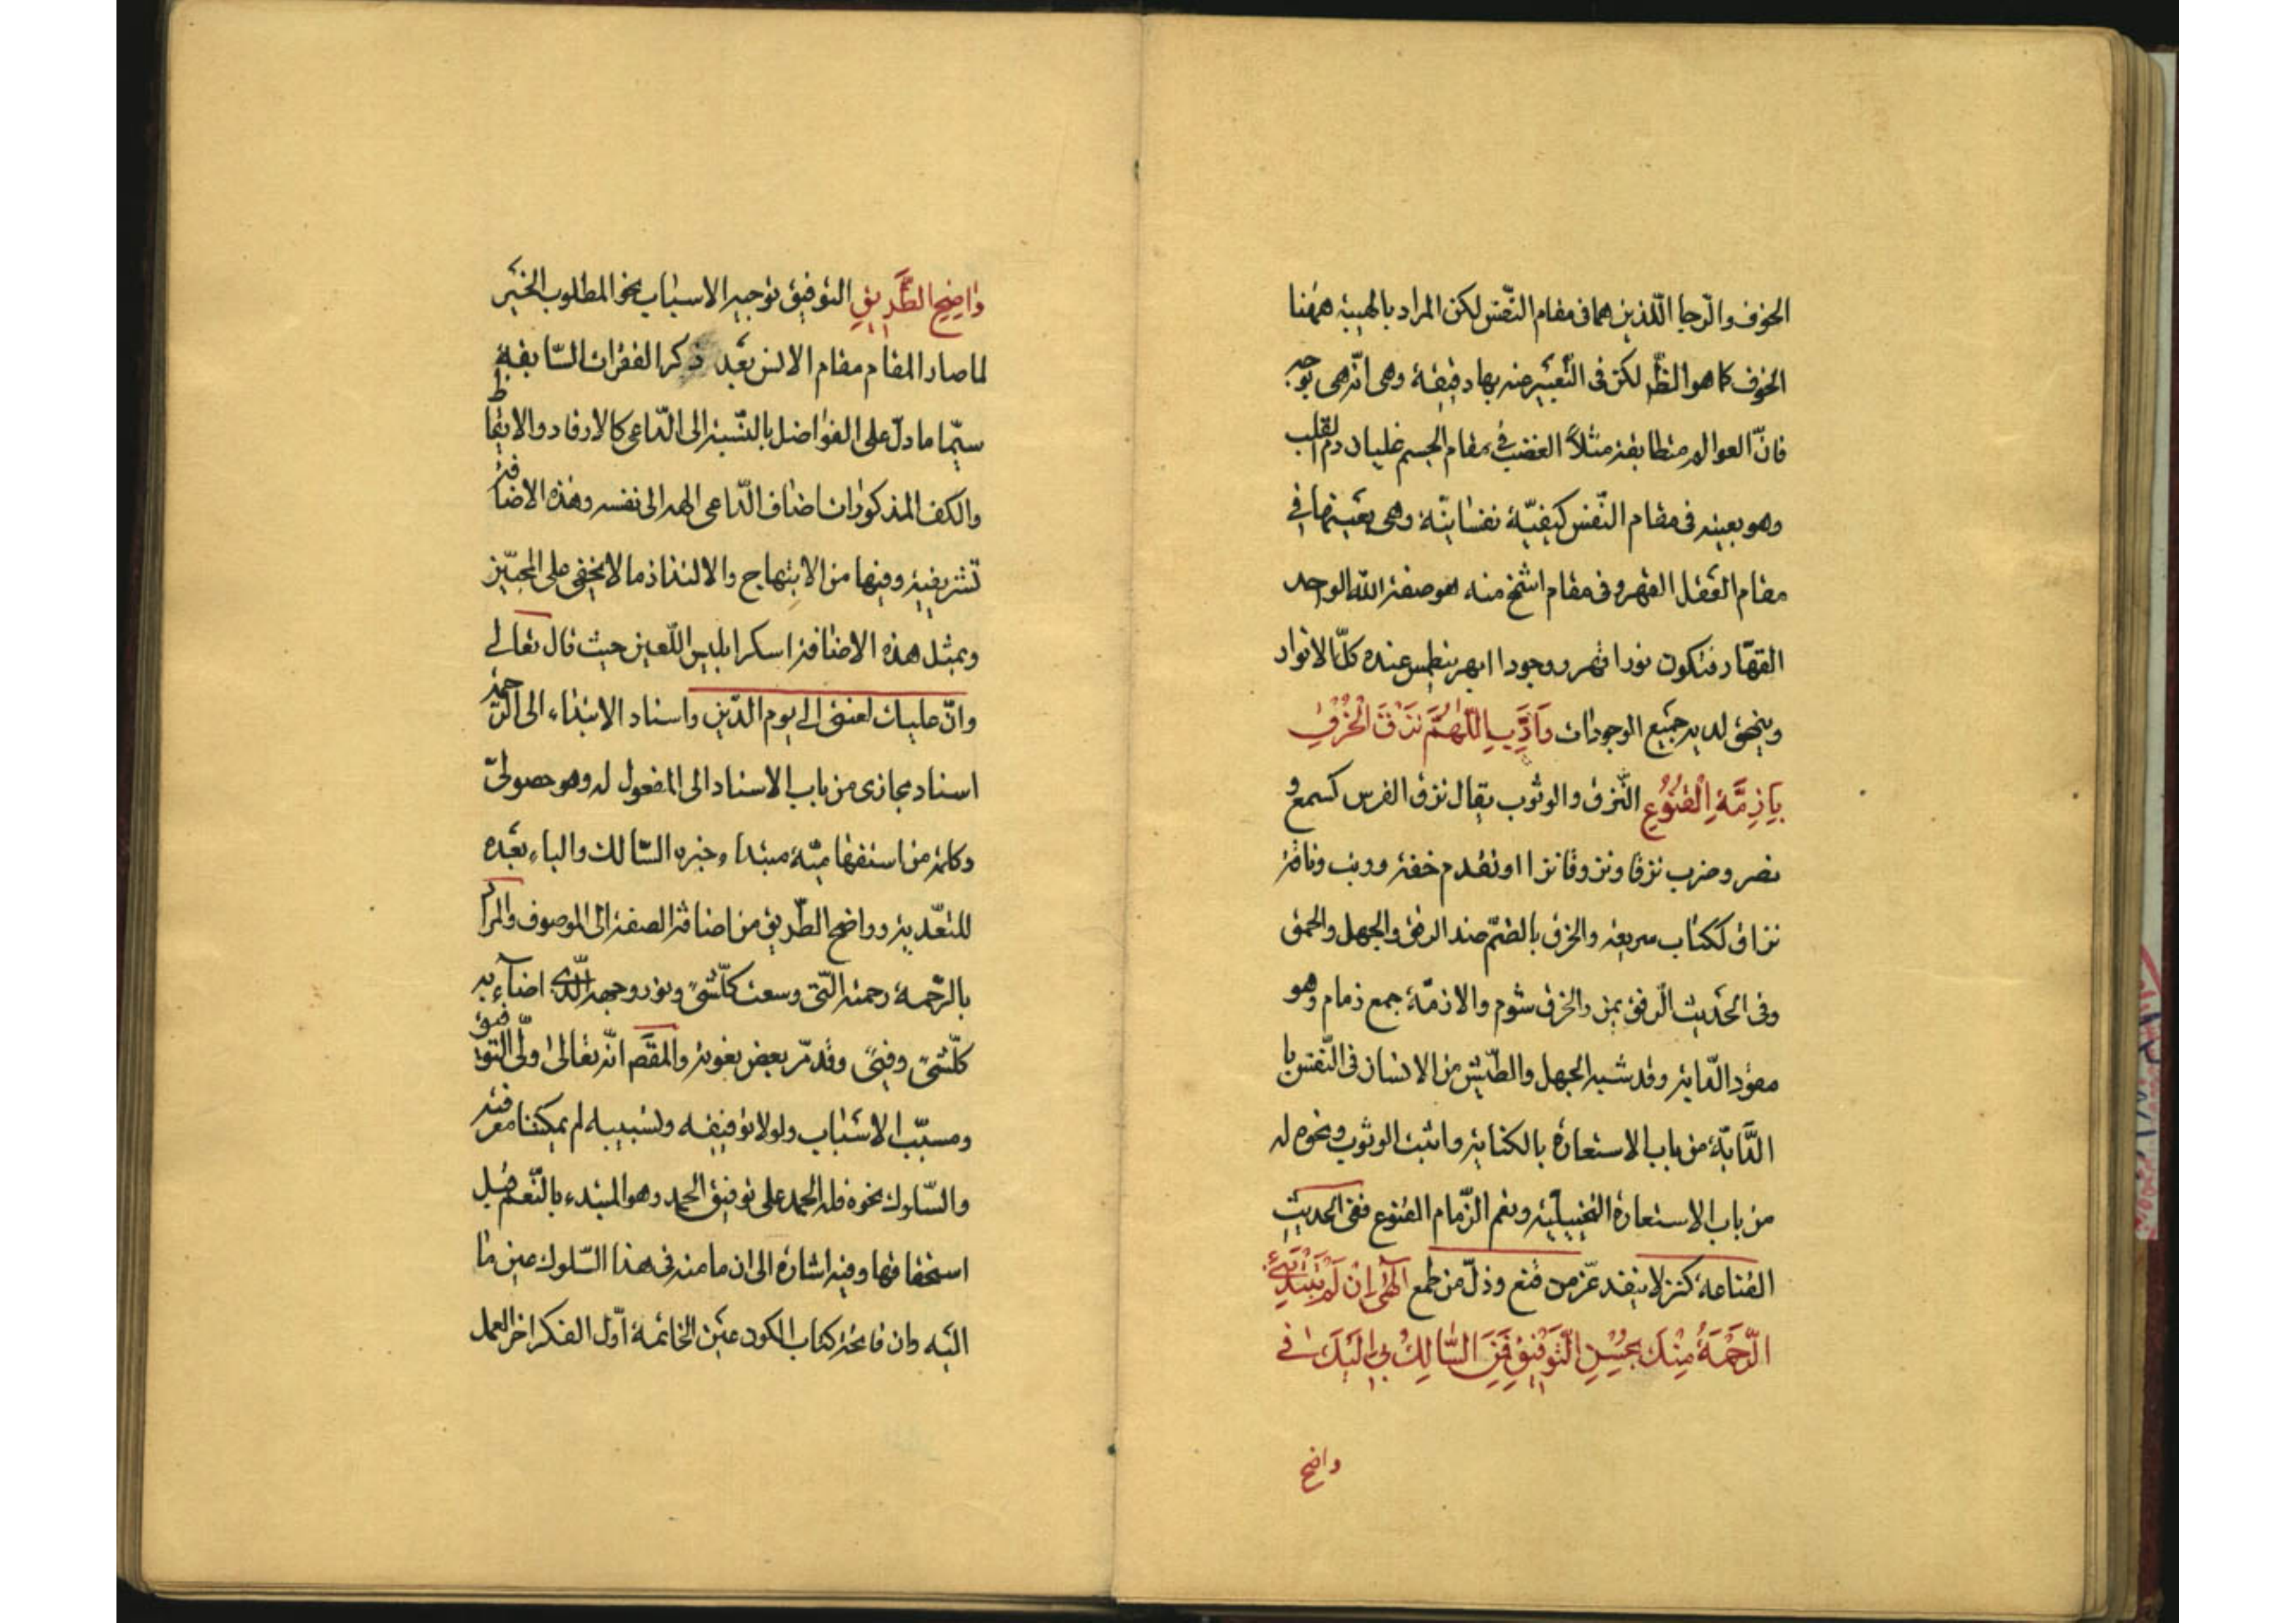 الخوف والرجا اللذين هما فى مقام النفس لكن المراد بالهيبة ههنا
الخوف كما هو الظ لكن فى التعبير عنه بها دقيقة وهى انه هى بوجه
فان العوالم متطابقة مثلاً الغضب فى مقام الجسم غليان دم القلب
وهو بعينه فى مقام النفس كيفيّة نفسانيّة وهى بعينها فى
مقام العقل القهر وفى مقام اشمخ منه هو صفة الله الواحد
القهّار فتكون نورا قهر ووجودا ابهر ينطمس عنده كلّ الانوار
وينمحق لديه جميع الوجودات وَاَدِّبِ اللّٰهُمَّ نَزَقَ الْخُرْقِ
بِاَزِمَّةِ الْقُنُوعِ النّزق والوثوب يقال نزق الفرس كسمع و
نصر وضرب نزقا ونزوقا نزا او تقدم خفة ووثب وناقة
نزاق ككتاب سريعة والخرق بالضمّ ضد الرفق والجهل والحمق
وفى الحديث الرفق يمن والخرق شوم والازمّة جمع زمام وهو
مقود الدابة وقد شبه الجهل والطيش من الانسان فى النّفس با
الدّابّة من باب الاستعارة بالكناية واثبت الوثوب ونحوه له
من باب الاستعارة التخييلية ونعم الزّمام القنوع ففى الحديث
القناعة كنز لا ينفد عزّ من قنع وذلّ من طمع اِلٰهى اِنْ لَمْ تَبْتَدِئْنِى
الرَّحْمَةُ مِنْكَ بِحُسْنِ التَّوْفِيقِ فَمَنِ السَّالِكُ بِى اِلَيْكَ فى
واضح
وٰاضِحِ الطَّرِيقِ التوفيق توجيه الاسباب نحو المطلوب الخير
لما صار المقام مقام الانس بعد ذكر الفقرات السّابقة
سيّما ما دلّ على الفواضل بالنّسبة الى الدّاعى كالارقاد والايقاظ
والكف المذكورات اضاف الدّاعى الهه الى نفسه وهذه الاضافة
تشريفية وفيها من الابتهاج والالتذاذ ما لا يخفى على المحبّين
وبمثل هذه الاضافة اسكر ابليس اللّعين حيث قال تعالى
وانّ عليك لعنتى الى يوم الدّين واسناد الابتداء الى الرّحمة
اسناد مجازى من باب الاسناد الى المفعول له وهو حصولىّ
وكلمة من استفهاميّة مبتداء وخبره السّالك والباء بعده
للتعدية وواضح الطّريق من اضافة الصفة الى الموصوف والمراد
بالرّحمة رحمته الّتى وسعت كلّ شىء ونور وجهه الّذى اضاء به
كلّ شىء وفىء وقد مرّ بعض نعوته والمقصم انّه تعالى ولىّ التّوفيق
ومسبّب الاسباب ولولا توفيقه وتسبيبه لم يمكننا معرفته
والسّلوك نحوه فله الحمد على توفيق الحمد وهو المبتدء بالنّعم قبل
استحقاقها وفيه اشارة الى ان ما منه فى هذا السّلوك عين ما
اليه وان فاتحة كتاب الكون عين الخاتمة اوّل الفكر اخر العمل